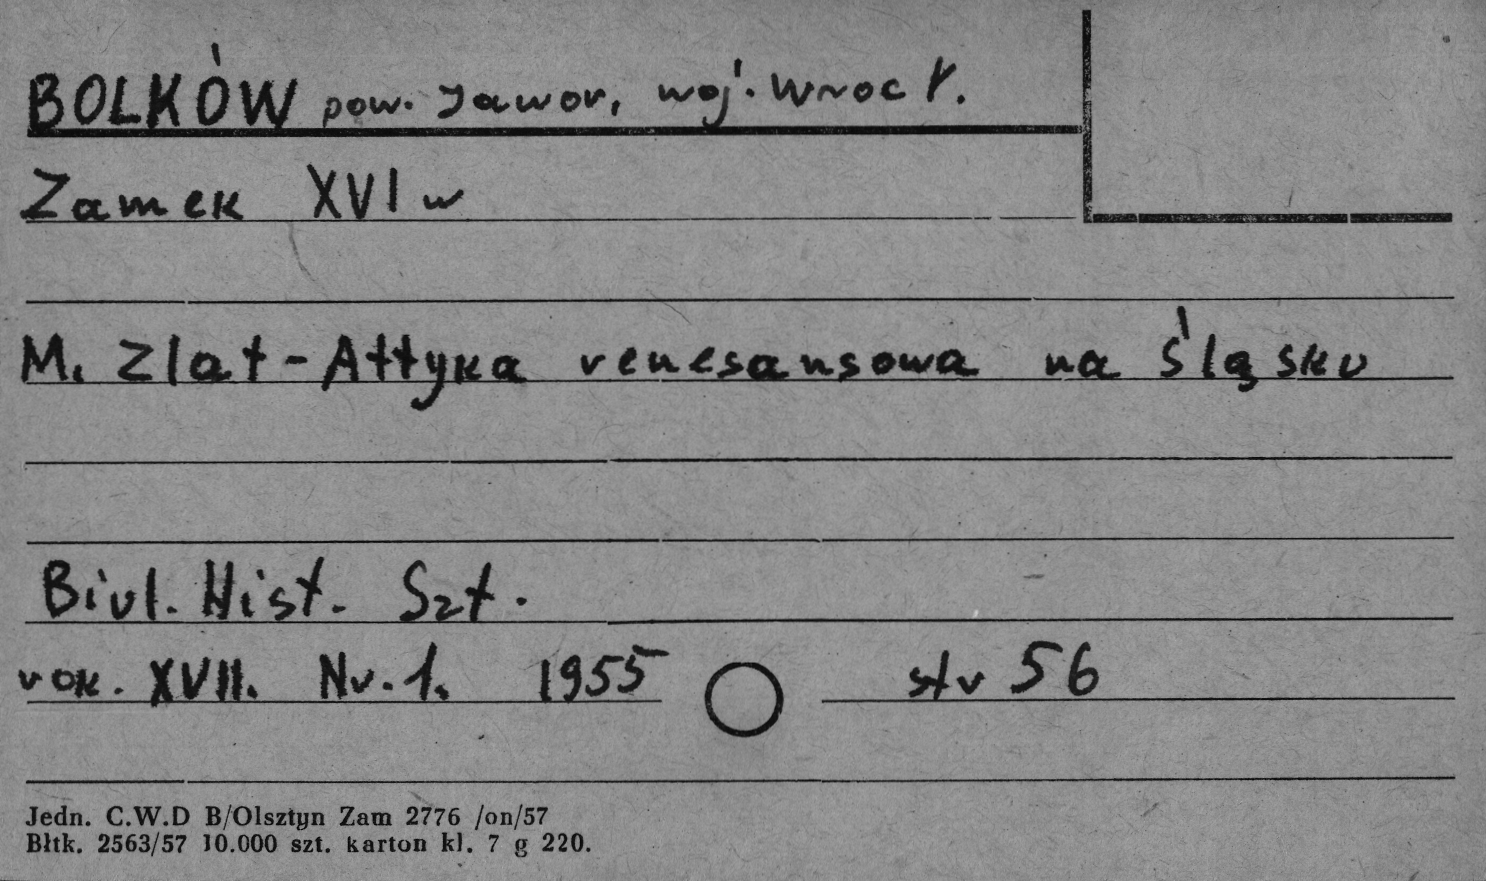 BOLKÓW pow. Jawor, woj. Wrocł.
Zamek XVI w
M. Zlat - Attyka renesansowa na Śląsku
Biul. Hist. Szt.
rok. XVII. Nr. 1. 1955 str 56
Jedn. C.W.D B/Olsztyn Zam 2776 /on/57
Błtk. 2563/57 10.000 szt. karton kl. 7 g 220.